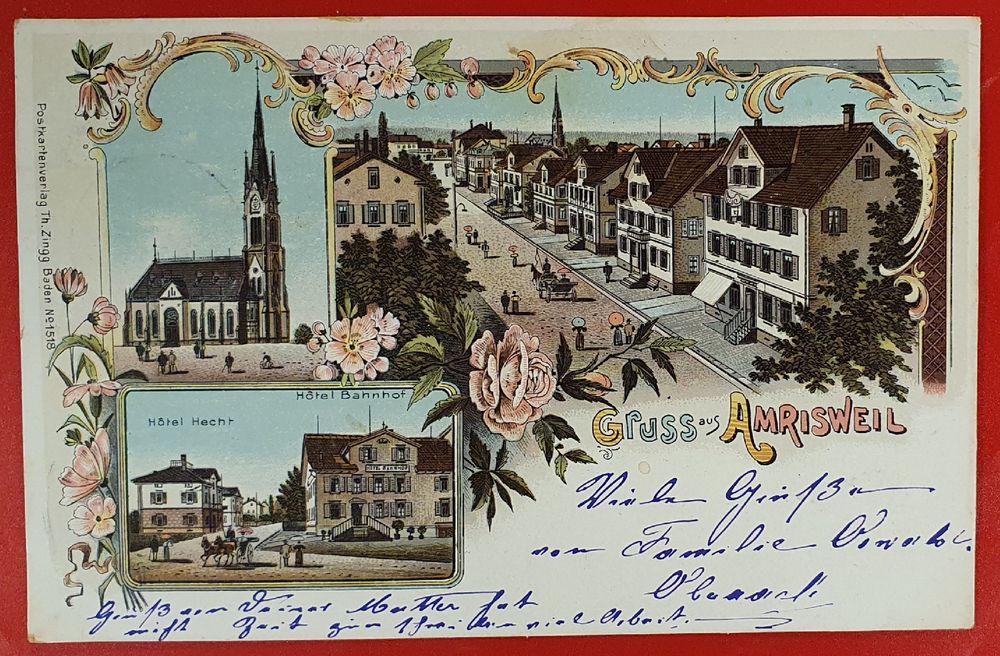 Postkartenverlag Th. Zingg Baden No 1518
Hôtel Bahnhof
Hôtel Hecht
HÔTEL BAHNHOF
Gruss aus AMRISWEIL
Viele Grüße
von Familie Oswald
Gruß von Deiner Mutter hat
nicht Zeit zum schreiben viel Arbeit.